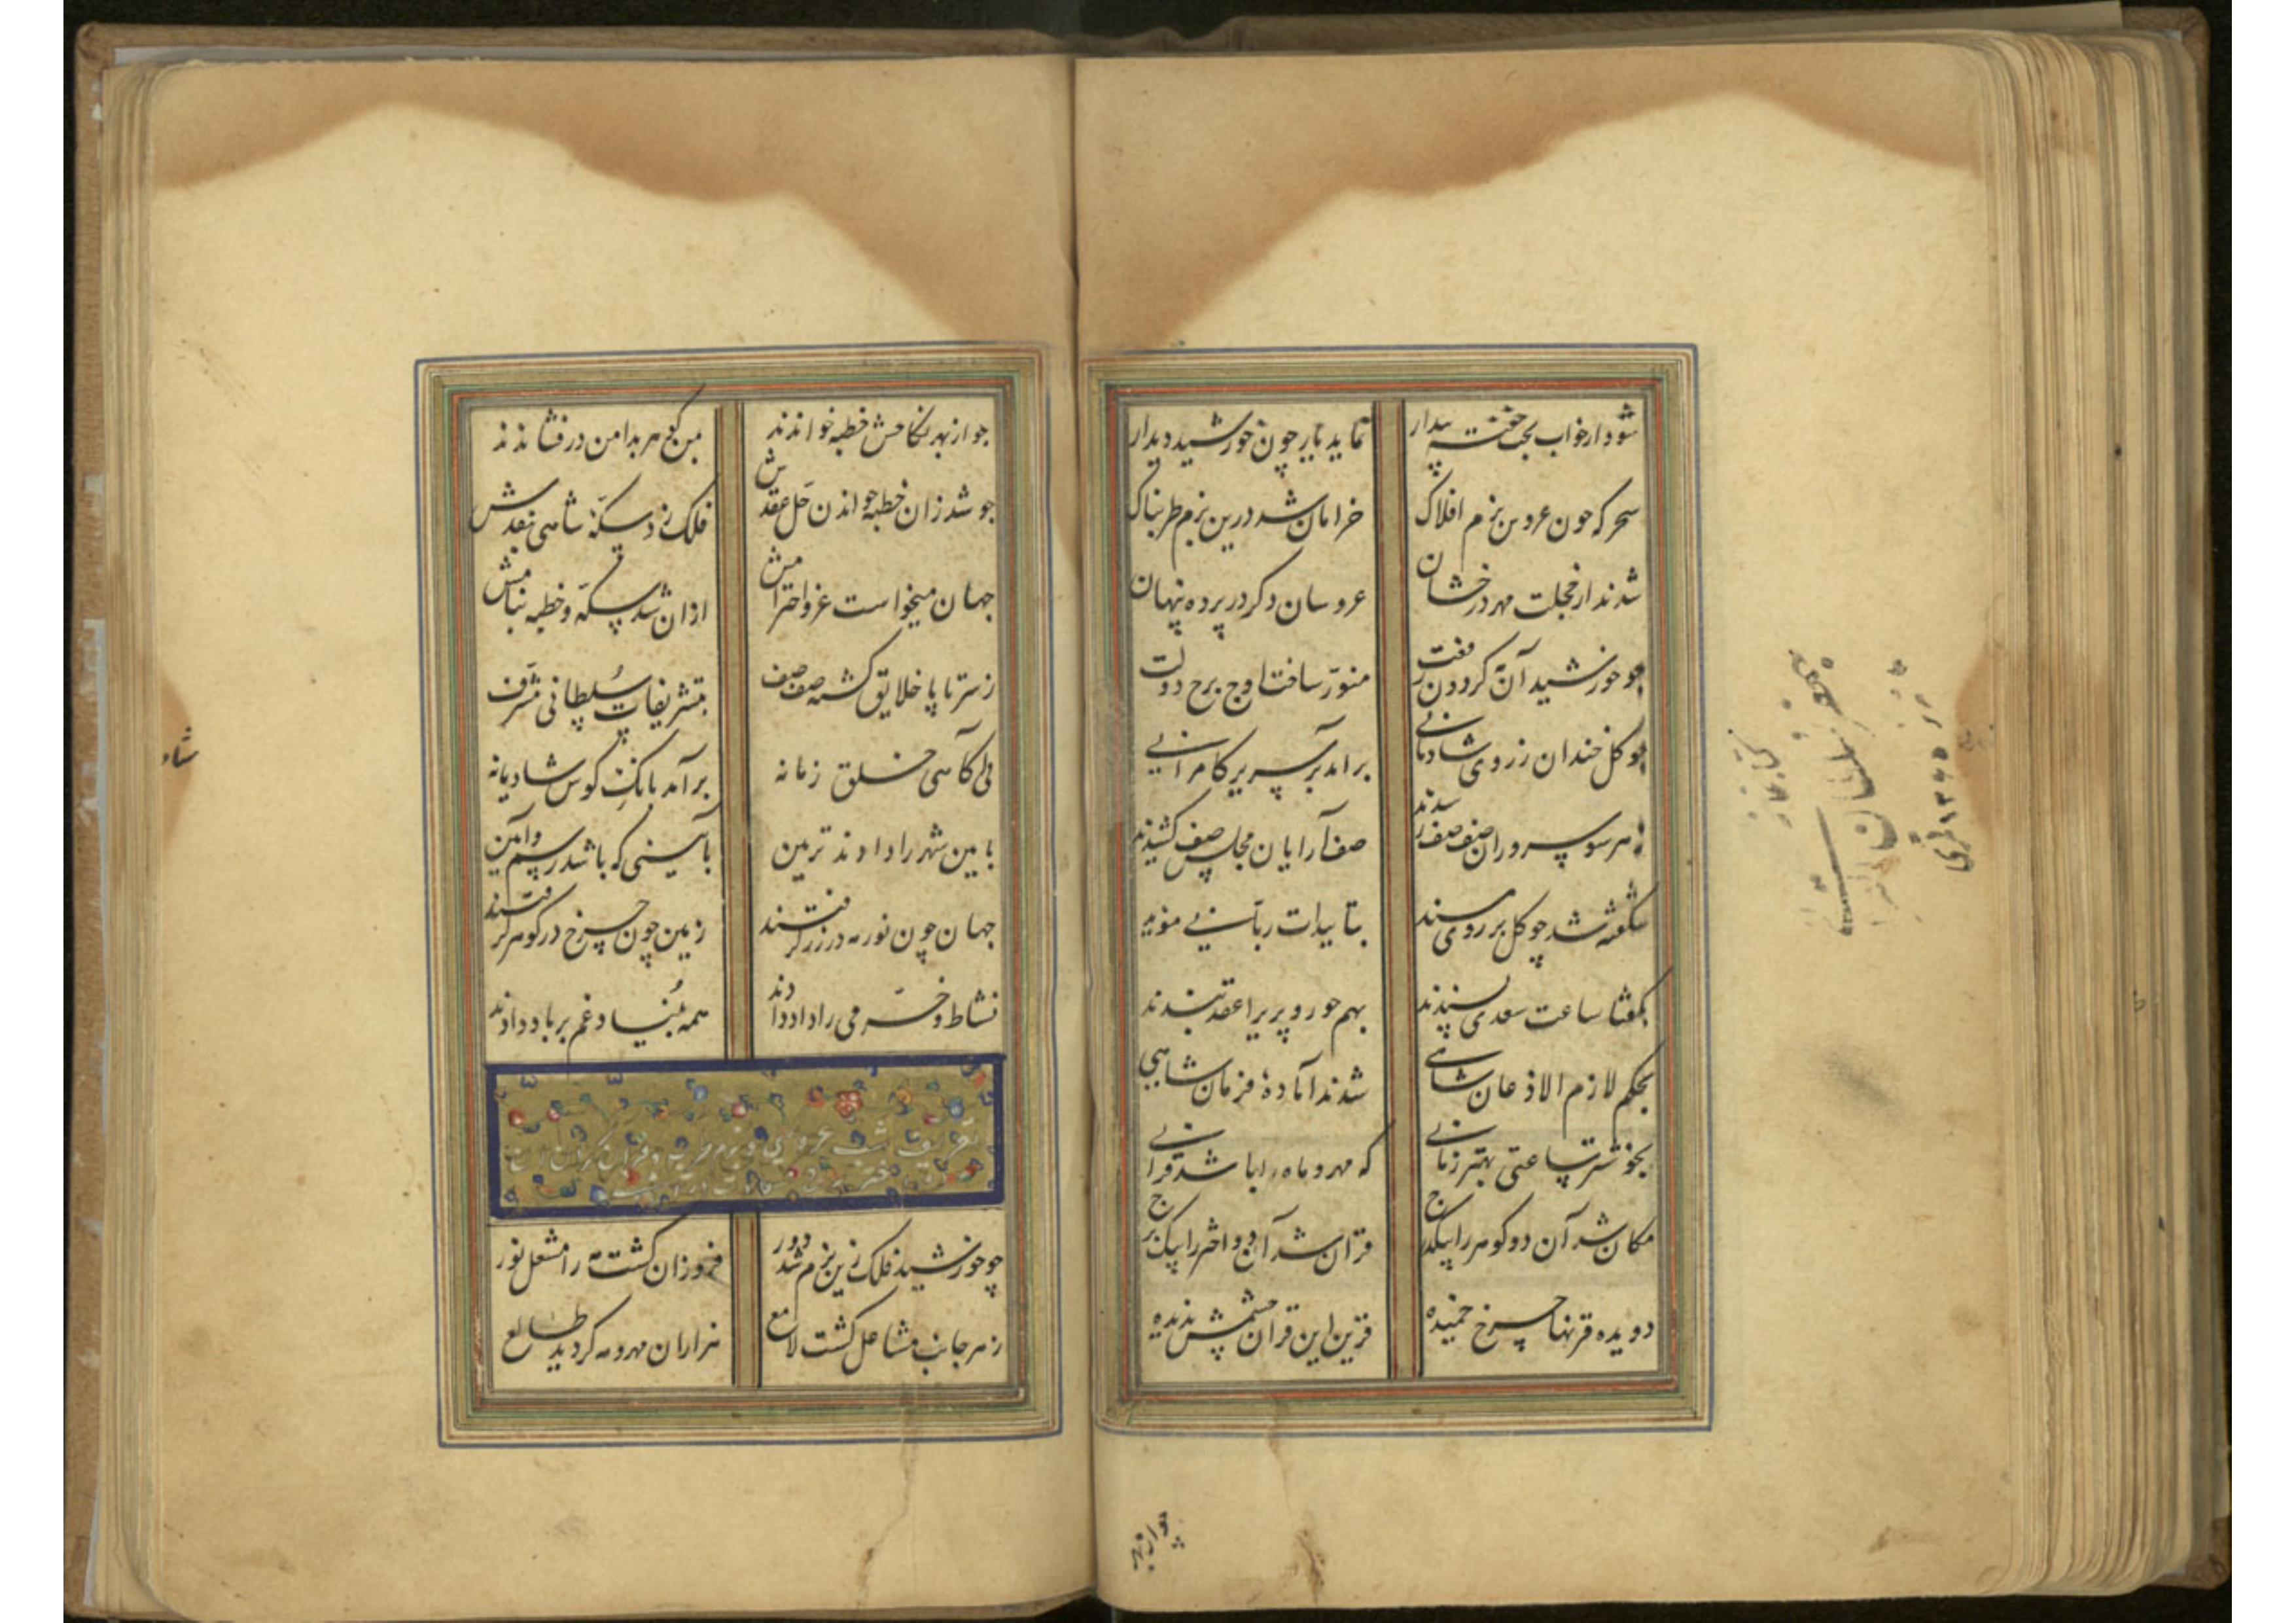 شود از خواب بخت خفته بیدار نماید یار چون خورشید دیدار
سحر که چون عروس بزم افلاک خرامان شد درین بزم طربناک
شدند از خجلت مهر درخشان عروسان دکر در پرده پنهان
چو خورشید آن کردون رفعت منور ساخت اوج برج دولت
چو کل خندان ز روی شادمانی برامد بر سریر کامرانی
ز هر سو سروران صف صف رسیدند صف آرایان مجلس صف کشیدند
شکفته شد چو کل بر روی مسند بتاییدات ربانی موید
بکفتا ساعت سعدی پسندند بهم حور و پریرا عقد بندند
بحکم لازم الاذعان شاهی شدند آماده فرمان شاهی
بخوشتر ساعتی بهتر زمانی که مهر و ماه را باشد قرانی
مکان شد آن دو کوهر را بیکدرج قران شد آن دو اختر را بیک برج
دویده قرنها چرخ خمیده قرین این قران چشمش ندیده
چو از بهر
چو از بهر نکاحش خطبه خواندند بسی کوهر بدامن در فشاندند
چو شد زان خطبه خواندن حل عقدش فلک زد سکه شاهی بنقدش
جهان میخواست عز و احترامش ازان شد سکه و خطبه بنامش
ز سر تا پا خلایق کشته صف صف بتشریفات سلطانی مشرف
پی آکاهی خلق زمانه برآمد بانک کوس شادیانه
بایین شهر را دادند تزیین بآیینی که باشد رسم و آیین
جهان چون نور مه در زر کرفتند زمین چون چرخ در کوهر کرفتند
نشاط و خرمی را داد دادند همه بنیاد غم بر باد دادند
تعریف شب عروسی و بزم
چو خورشید فلک زین بزم شد دور فروزان کشت مه را مشعل نور
ز هر جانب مشاعل کشت لامع هزاران مهر و مه کردید طالع